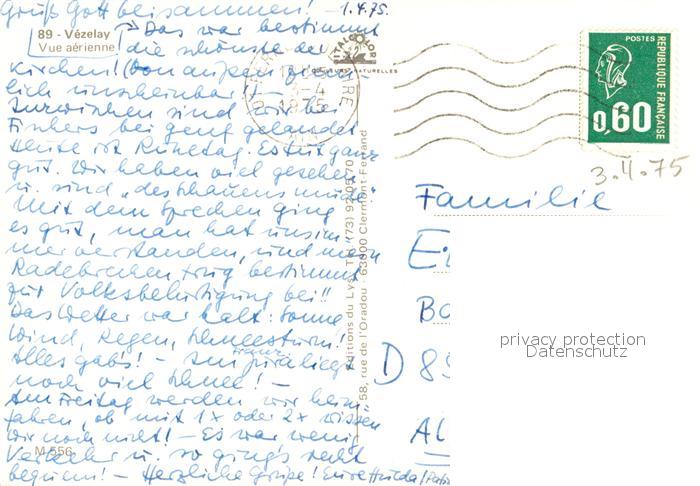 Grüß Gott beisammen! - 1.4.75.
89 - Vézelay
Vue aérienne
→ Das war bestimmt
die schönste der
Kirchen! (Von außen ziem-
lich unscheinbar!! -
Inzwischen sind wir bei
Fischers bei Genf gelandet
Heute ist Ruhetag. Es tut ganz
gut. Wir haben viel gesehen
u. sind „des Schauens müde"
Mit dem Sprechen ging
es gut, man hat uns im-
mer verstanden, und mein
Radebrechen trug bestimmt
zur Volksbelustigung bei!!
Das Wetter war kalt: Sonne
Wind, Regen, Schneesturm!
Alles gab's! - Im franz. Jura liegt
noch viel Schnee! -
Am Freitag werden wir heim-
fahren, ob mit 1x oder 2x wissen
wir noch nicht! - Es war wenig
Verkehr u. so ging's recht
bequem! - Herzliche Grüße! Eure Hulda
M 556
Editions du Lys - Tél. (73) 92.05.70
58, rue de l'Oradou - 63000 Clermont Ferrand
COULEURS NATURELLES
-4
1975
POSTES
REPUBLIQUE FRANÇAISE
0,60
3.4.75
Familie
D 89
privacy protection
Datenschutz